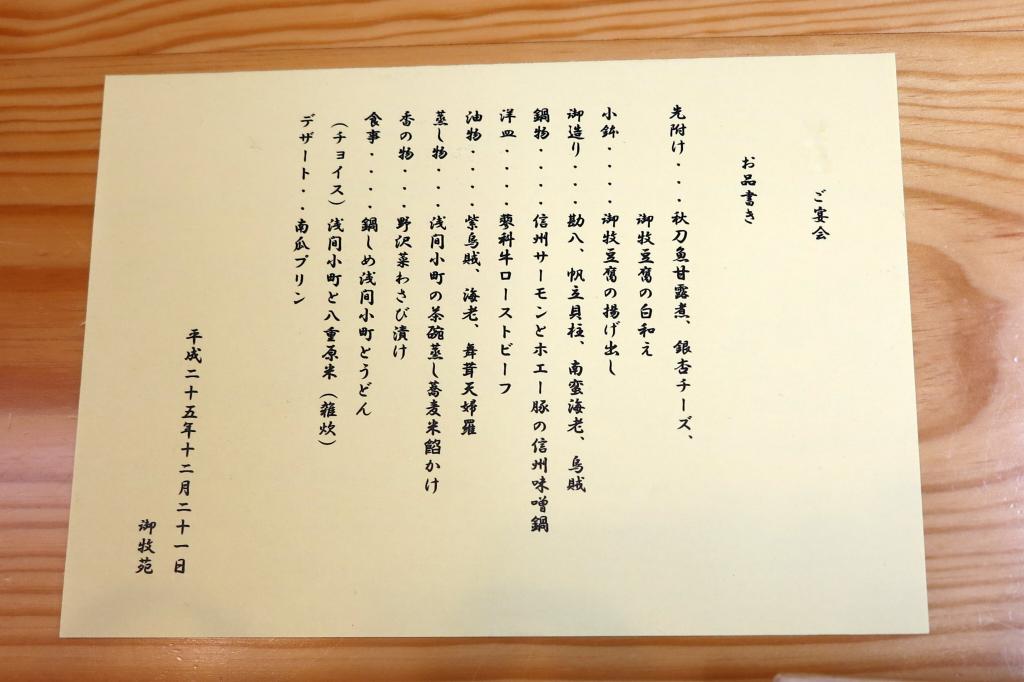 ご宴会
お品書き
先附け・・・秋刀魚甘露煮、銀杏チーズ、
御牧豆腐の白和え
小鉢・・・・御牧豆腐の揚げ出し
御造り・・・勘八、帆立貝柱、南蛮海老、烏賊
鍋物・・・・信州サーモンとホエー豚の信州味噌鍋
洋皿・・・・蓼科牛ローストビーフ
油物・・・・紫烏賊、海老、舞茸天婦羅
蒸し物・・・浅間小町の茶碗蒸し蕎麦米餡かけ
香の物・・・野沢菜わさび漬け
食事・・・・鍋しめ浅間小町とうどん
（チョイス）浅間小町と八重原米（雑炊）
デザート・・南瓜プリン
平成二十五年十二月二十一日
御牧苑